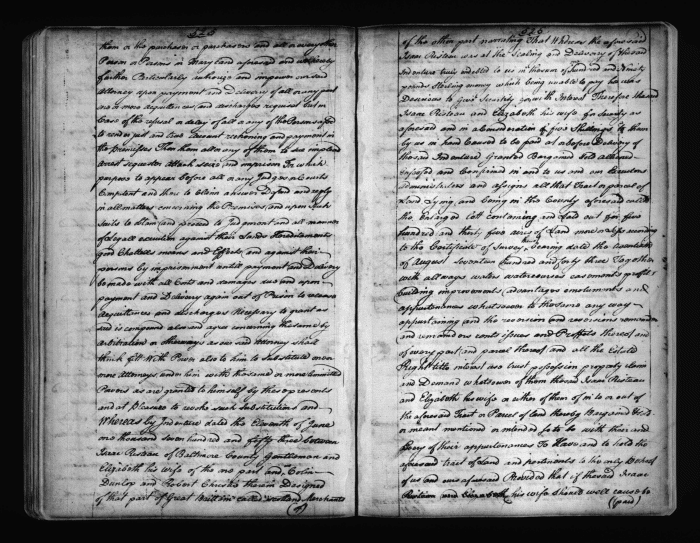 them or his purchaser or purchasers and all or every other
Person or Persons in Maryland aforesaid and we hereby
further Particularly authorize and impower our said
Attorney upon payment and delivery of all or any part
one or more Acquittances and discharges request but in
Case of the refusal or delay of all or any of the Persons
to render just and true Accompt reckoning and payment in
the premisses Then them all or any of them to sue implead
arrest sequester attach seize and imprison In which
purpose to appear before all or any Judges or Courts
Competent and there to Claim answer Defend and reply
in all matters concerning the Premisses and upon such
Suits to Claim and proceed to Judgment and all manner
of Legall execution against their Lands Hereditaments
Goods Chattells means and Effects and against their
persons by imprisonment untill payment and Delivery
be made with all Costs and damages and upon
payment and Delivery again out of Prison to release
Acquittances and discharges Necessary to grant as
said is compound also and agree concerning the same by
Arbitration or otherways as our said attorney shall
think fitt With Power also to him to Substitute one or
more attorneys under him with the same or more limmited
Powers as are granted to himself by these presents
and at pleasure to revoke such Substitutions and
Whereas by Indenture dated the Eleventh of June
one thousand seven hundred and fifty three between
Isaac Risteau of Baltimore County Gentleman and
Elizabeth his wife of the one part and Colin
Dunlop and Robert Cheislie therein Designed
of that part of Great Brittain called Scotland Merchants
(of
of the other part narrating That Whereas the aforesaid
Isaac Risteau was at the Sealing and Delivery of the said
Indenture truly indebted to us in the sum of hundred and Ninety
pounds Sterling money which being unable to pay he was
Desirous to give Security for with Interest Therefore the said
Isaac Risteau and Elizabeth his wife for Security as
aforesaid and in Consideration of five Shillings to them
by us in hand Caused to be paid at or before Delivery of
the said Indenture Granted Bargained Sold alliened
released and Confirmed in and to us and our Executors
administrators and assigns all that Tract or parcel of
Land Lying and being in the County aforesaid called
the Enlarged Lott containing and laid out for five
hundred and thirty five acres of Land more or less according
to the Certificate of Survey bearing date the
of August Seventeen hundred and forty three Together
with all ways waters watercourses easements profits
building improvements advantages emoluments and
appurtenances whatsoever to the same any way
appertaining and the reversion and reversions remainder
and remainders rents issues and Proffits thereof and
of every part and parcel thereof and all the Estate
Right title interest use trust possession property claim
and Demand whatsoever of them the said Isaac Risteau
and Elizabeth his wife or either of them of in to or out of
the aforesaid Tract or Parcel of Land thereby Bargained Sold
or meant mentioned or intended so to be with their and
Every of their appurtenances To Have and to hold the
aforesaid tract of Land and pertinents to his only behoof
of us and our aforesaid Provided that if the said Isaac
Risteau and Elizabeth his wife should well cause be
(paid)